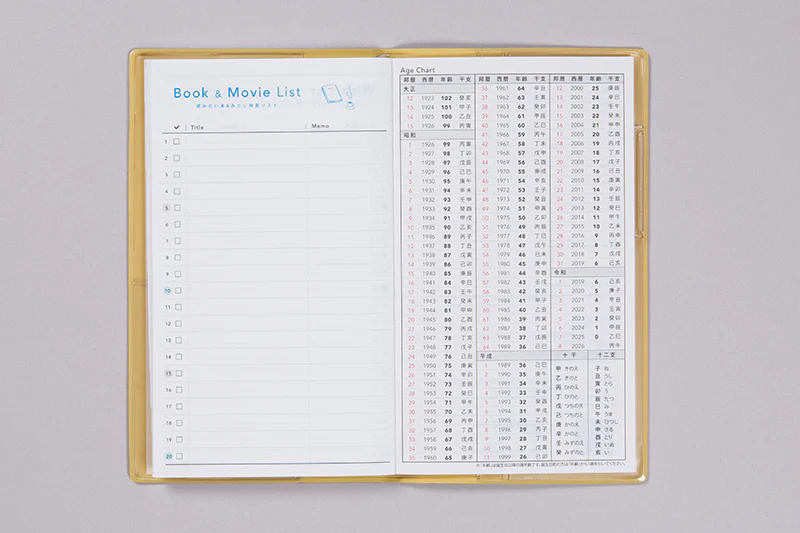 Book & Movie List
読みたい本&みたい映画リスト
✓ Title Memo
1
2
3
4
5
6
7
8
9
10
11
12
13
14
15
16
17
18
19
20
Age Chart
邦暦 西暦 年齢 干支
大正
12 1923 102 癸亥
13 1924 101 甲子
14 1925 100 乙丑
15 1926 99 丙寅
昭和
1 1926 99 丙寅
2 1927 98 丁卯
3 1928 97 戊辰
4 1929 96 己巳
5 1930 95 庚午
6 1931 94 辛未
7 1932 93 壬申
8 1933 92 癸酉
9 1934 91 甲戌
10 1935 90 乙亥
11 1936 89 丙子
12 1937 88 丁丑
13 1938 87 戊寅
14 1939 86 己卯
15 1940 85 庚辰
16 1941 84 辛巳
17 1942 83 壬午
18 1943 82 癸未
19 1944 81 甲申
20 1945 80 乙酉
21 1946 79 丙戌
22 1947 78 丁亥
23 1948 77 戊子
24 1949 76 己丑
25 1950 75 庚寅
26 1951 74 辛卯
27 1952 73 壬辰
28 1953 72 癸巳
29 1954 71 甲午
30 1955 70 乙未
31 1956 69 丙申
32 1957 68 丁酉
33 1958 67 戊戌
34 1959 66 己亥
35 1960 65 庚子
邦暦 西暦 年齢 干支
36 1961 64 辛丑
37 1962 63 壬寅
38 1963 62 癸卯
39 1964 61 甲辰
40 1965 60 乙巳
41 1966 59 丙午
42 1967 58 丁未
43 1968 57 戊申
44 1969 56 己酉
45 1970 55 庚戌
46 1971 54 辛亥
47 1972 53 壬子
48 1973 52 癸丑
49 1974 51 甲寅
50 1975 50 乙卯
51 1976 49 丙辰
52 1977 48 丁巳
53 1978 47 戊午
54 1979 46 己未
55 1980 45 庚申
56 1981 44 辛酉
57 1982 43 壬戌
58 1983 42 癸亥
59 1984 41 甲子
60 1985 40 乙丑
61 1986 39 丙寅
62 1987 38 丁卯
63 1988 37 戊辰
64 1989 36 己巳
平成
1 1989 36 己巳
2 1990 35 庚午
3 1991 34 辛未
4 1992 33 壬申
5 1993 32 癸酉
6 1994 31 甲戌
7 1995 30 乙亥
8 1996 29 丙子
9 1997 28 丁丑
10 1998 27 戊寅
11 1999 26 己卯
邦暦 西暦 年齢 干支
12 2000 25 庚辰
13 2001 24 辛巳
14 2002 23 壬午
15 2003 22 癸未
16 2004 21 甲申
17 2005 20 乙酉
18 2006 19 丙戌
19 2007 18 丁亥
20 2008 17 戊子
21 2009 16 己丑
22 2010 15 庚寅
23 2011 14 辛卯
24 2012 13 壬辰
25 2013 12 癸巳
26 2014 11 甲午
27 2015 10 乙未
28 2016 9 丙申
29 2017 8 丁酉
30 2018 7 戊戌
31 2019 6 己亥
令和
1 2019 6 己亥
2 2020 5 庚子
3 2021 4 辛丑
4 2022 3 壬寅
5 2023 2 癸卯
6 2024 1 甲辰
7 2025 0 乙巳
8 2026 丙午
十干
甲 きのえ
乙 きのと
丙 ひのえ
丁 ひのと
戊 つちのえ
己 つちのと
庚 かのえ
辛 かのと
壬 みずのえ
癸 みずのと
十二支
子 ね
丑 うし
寅 とら
卯 う
辰 たつ
巳 み
午 うま
未 ひつじ
申 さる
酉 とり
戌 いぬ
亥 い
※「年齢」は誕生日以降の満年齢です。誕生日前の方は「年齢」から1歳を引いてください。